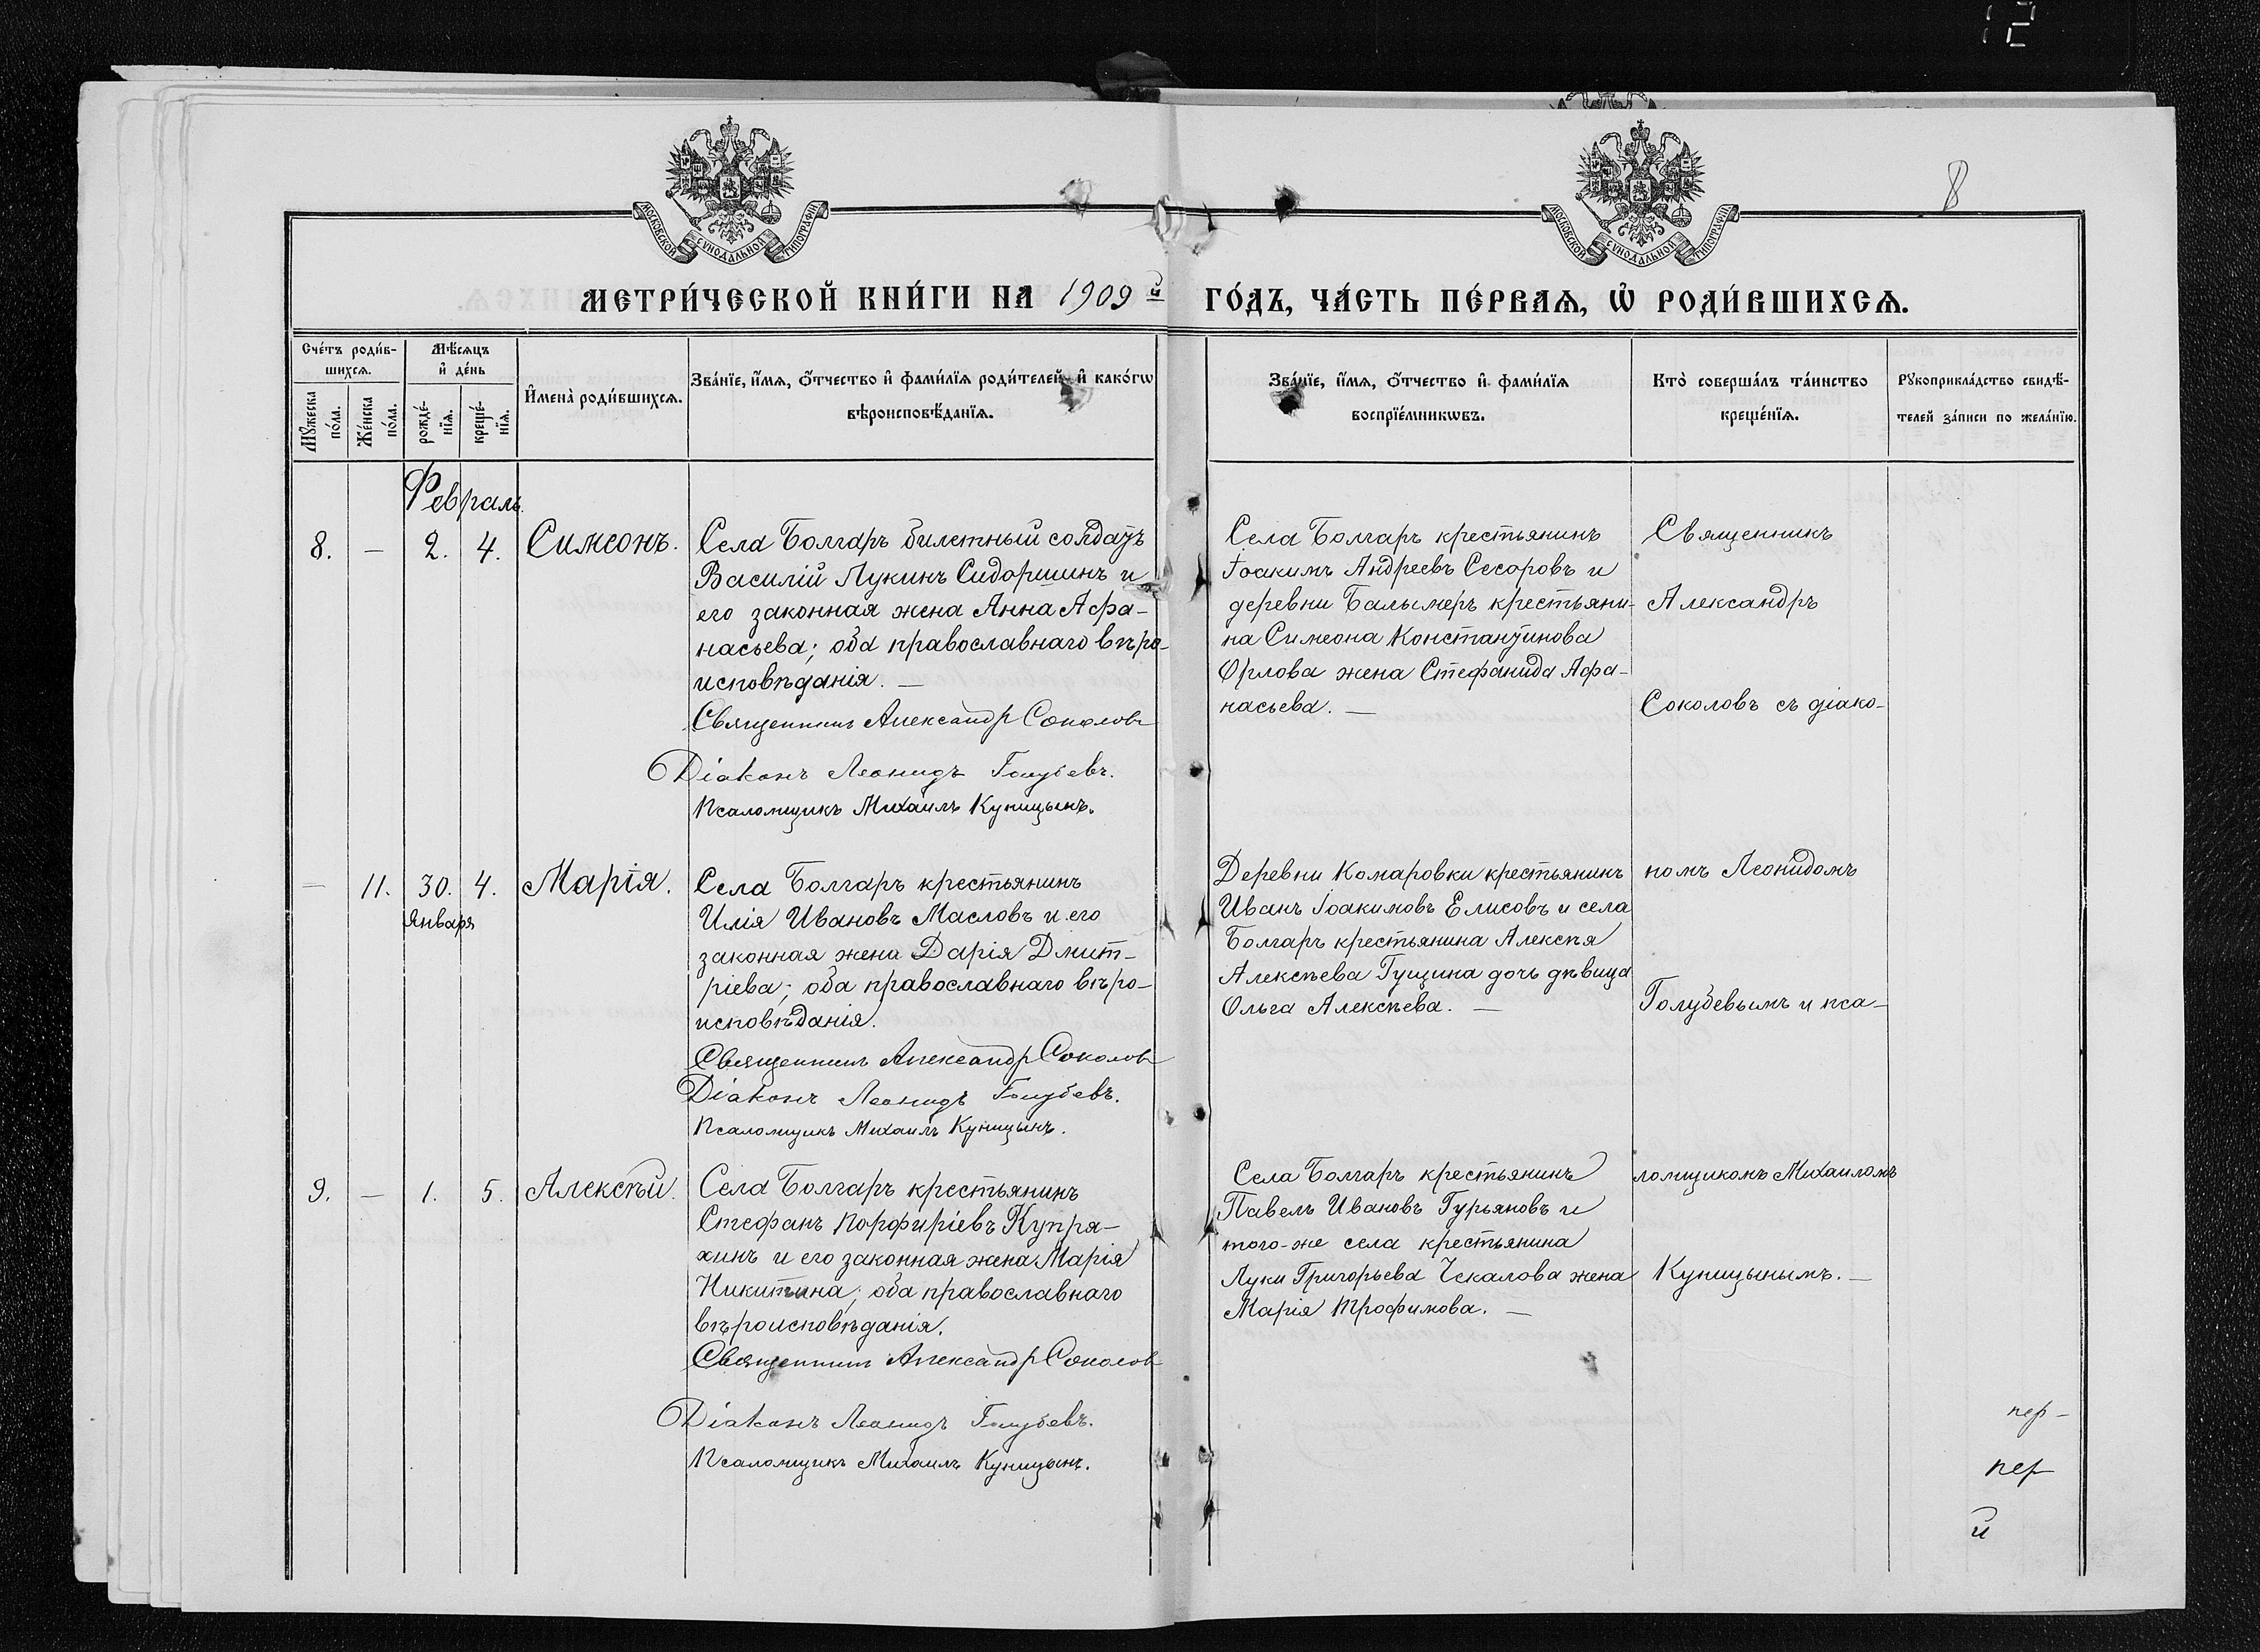 12
8
МОСКОВСКОЙ СѴНОДАЛЬНОЙ ТИПОГРАФІИ
МОСКОВСКОЙ СѴНОДАЛЬНОЙ ТИПОГРАФІИ
МЕТРИ́ЧЕСКОЙ КНИ́ГИ НА 1909й ГО́ДЪ, ЧА́СТЬ ПЕ́РВАѦ, Ѡ҆ РОДИ́ВШИХСѦ.
Сче́тъ роди́в-
шихсѧ.
Мꙋ́жеска
по́ла.
Же́нска
по́ла.
Мѣ́сѧцъ
и҆ де́нь
рожде́-
нїѧ.
креще́-
нїѧ.
И҆мена̀ роди́вшихсѧ.
Зва́нїе, и҆́мѧ, ѻ҆́тчество и҆ фами́лїѧ роди́телей, и҆ како́гѡ
вѣроисповѣ́данїѧ.
Зва́нїе, и҆́мѧ, ѻ҆́тчество и҆ фами́лїѧ
воспрїе́мникѡвъ.
Кто̀ соверша́лъ та́инство
креще́нїѧ.
Рꙋкоприкла́дство свидѣ́-
телей за́писи по жела́нїю.
Февраль.
8.
—
2.
4.
Симеонъ.
Села Болгаръ билетный солдатъ
Василій Лукинъ Сидоришинъ и
его законная жена Анна Афа-
насьева; оба православнаго вѣро-
исповѣданія. —
Священникъ Александр Соколовъ
Діаконъ Леонидъ Голубевъ.
Псаломщикъ Михаилъ Куницынъ.
Села Болгаръ крестьянинъ
Іоакимъ Андреевъ Сесоровъ и
деревни Балымеръ крестьяни-
на Симеона Константинова
Орлова жена Стефанида Афа-
насьева. —
Священникъ
Александръ
Соколовъ съ діако-
—
11.
30.
Января
4.
Марія.
Села Болгаръ крестьянинъ
Илія Ивановъ Масловъ и его
законная жена Дарія Дмит-
ріева; оба православнаго вѣро-
исповѣданія.
Священникъ Александр Соколовъ
Діаконъ Леонидъ Голубевъ.
Псаломщикъ Михаилъ Куницынъ.
Деревни Комаровки крестьянинъ
Иванъ Іоакимовъ Елисовъ и села
Болгаръ крестьянина Алексѣя
Алексѣева Гущина дочь дѣвица
Ольга Алексѣева. —
номъ Леонидомъ
Голубевымъ и пса-
9.
—
1.
5.
Алексѣй.
Села Болгаръ крестьянинъ
Стефанъ Порфиріевъ Купря-
хинъ и его законная жена Марія
Никитина; оба православнаго
вѣроисповѣданія.
Священникъ Александр Соколовъ
Діаконъ Леонидъ Голубевъ.
Псаломщикъ Михаилъ Куницынъ.
Села Болгаръ крестьянинъ
Павелъ Ивановъ Гурьяновъ и
того-же села крестьянина
Луки Григорьева Чекалова жена
Марія Трофимова. —
ломщикомъ Михаиломъ
Куницынымъ. —
пер-
пер
й